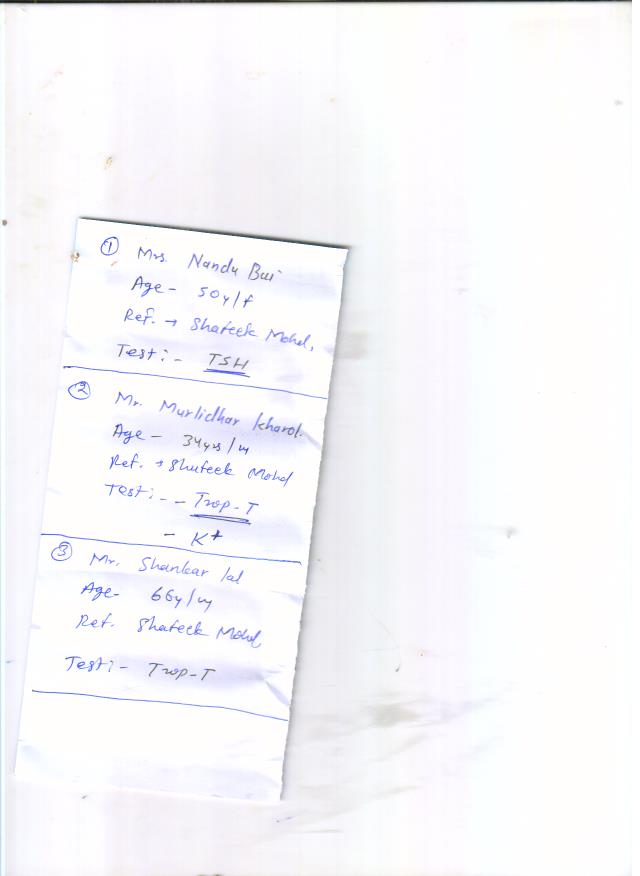 ① Mrs. Nandu Bai
Age- 50y/f
Ref. → Shafeek Mohd.
Test:- TSH
② Mr. Murlidhar Kharol.
Age- 34yrs/m
Ref. → Shafeek Mohd
Test:- - Trop-T
- K+
③ Mr. Shankar lal
Age- 66y/m
Ref. Shafeek Mohd
Test:- Trop-T